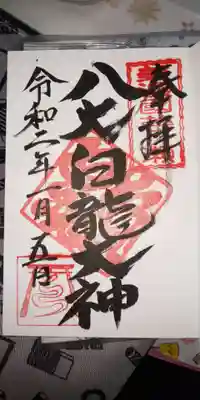 奉拝
八大白龍大神
令和二年一月五月